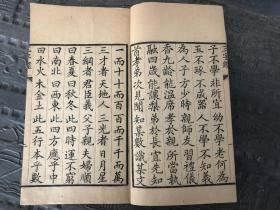 子不學非所宜幼不學老何為
玉不琢不成器人不學不知義
為人子方少時親師友習禮儀
香九齡能溫席孝於親所當執
融四歲能讓梨弟於長宜先知
首孝弟次見聞知某數識某文
一而十十而百百而千千而萬
三才者天地人三光者日月星
三綱者君臣義父子親夫婦順
曰春夏曰秋冬此四時運不窮
曰南北曰西東此四方應乎中
曰水火木金土此五行本乎數